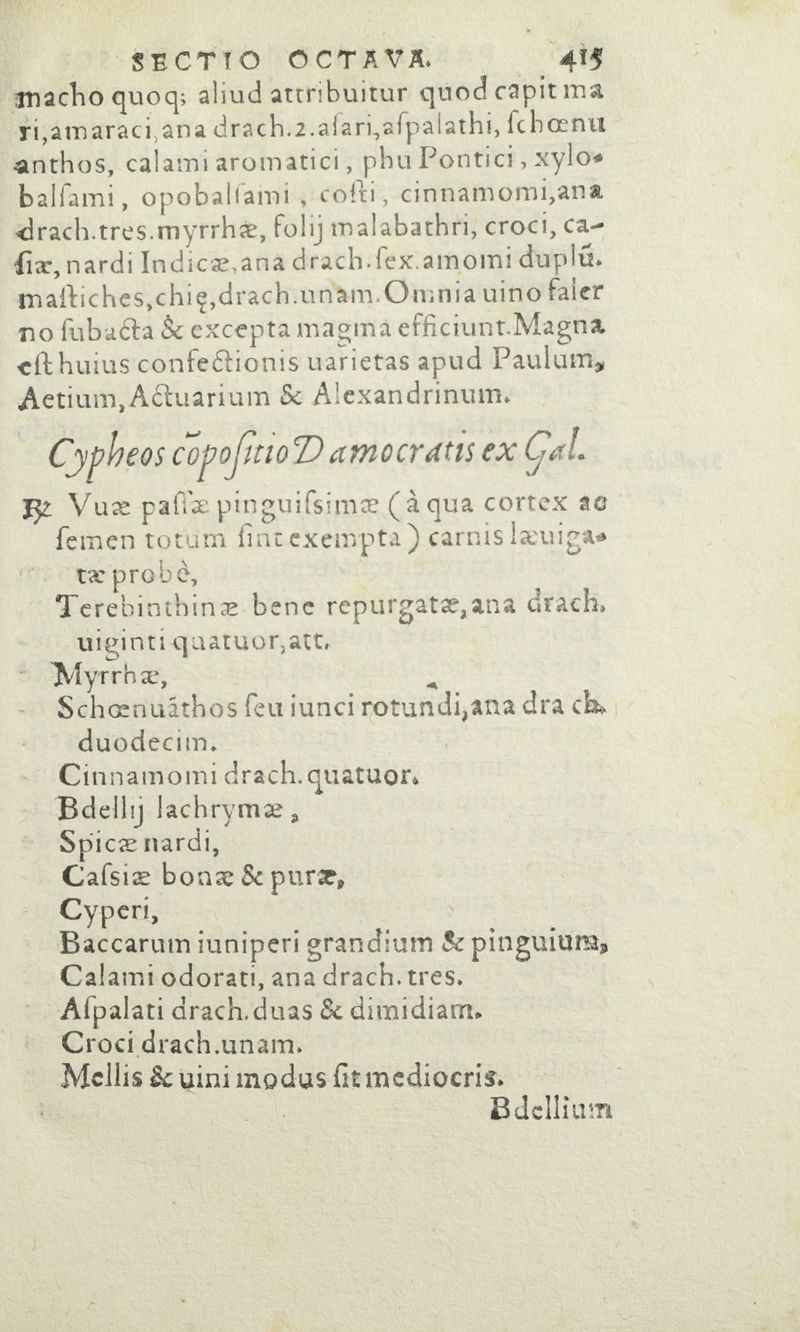 SECTIO OCTAVA. 415
macho quoq; aliud attribuitur quod capit ma
ri,amaraci,ana drach.2.aſari,aſpalathi, ſchœnu
anthos, calami aromatici, phu Pontici, xylo-
balſami, opobalſami, coſti, cinnamomi,ana
drach.tres.myrrhæ, folij malabathri, croci, ca-
ſiæ, nardi Indicæ,ana drach.ſex.amomi duplū.
maſtiches,chię,drach.unam.Omnia uino faler
no ſubacta & excepta magma efficiunt.Magna
eſt huius confectionis uarietas apud Paulum,
Aetium, Actuarium & Alexandrinum.
Cypheos cōpoſitio Damocratis ex Gal.
℞ Vuæ paſſæ pinguiſsimæ (à qua cortex ac
ſemen totum ſint exempta) carnis læuiga-
tæ probè,
Terebinthinæ bene repurgatæ,ana drach.
uiginti quatuor,att.
Myrrhæ,
Schœnuāthos ſeu iunci rotundi,ana dra ch.
duodecim.
Cinnamomi drach.quatuor.
Bdellij lachrymæ,
Spicæ nardi,
Caſsiæ bonæ & puræ,
Cyperi,
Baccarum iuniperi grandium & pinguium,
Calami odorati, ana drach.tres.
Aſpalati drach.duas & dimidiam.
Croci drach.unam.
Mellis & uini modus ſit mediocris.
Bdellium